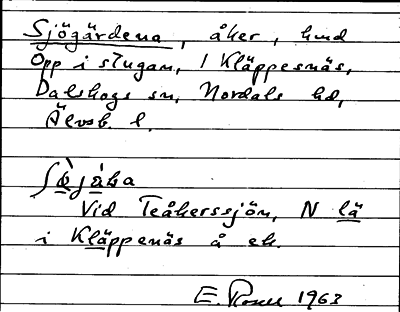 Sjögärdena, åker, hmd
Opp i stugan, 1 Kläppesnäs,
Dalskogs sn, Nordals hd,
Älvsb. l.
Vid Teåkerssjön, N lä
i Kläppenäs å ek.
E. 1963